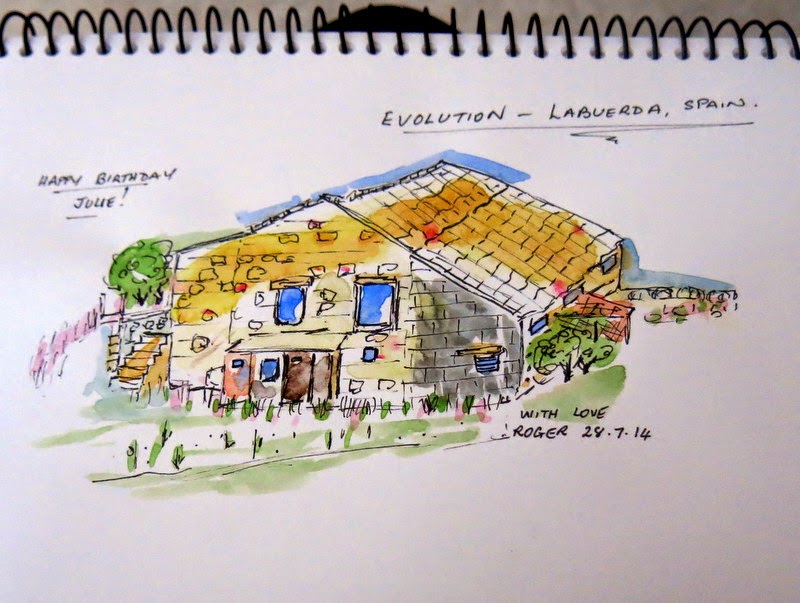 EVOLUTION – LABUERDA, SPAIN.
HAPPY BIRTHDAY
JULIE!
WITH LOVE
ROGER 28.7.14